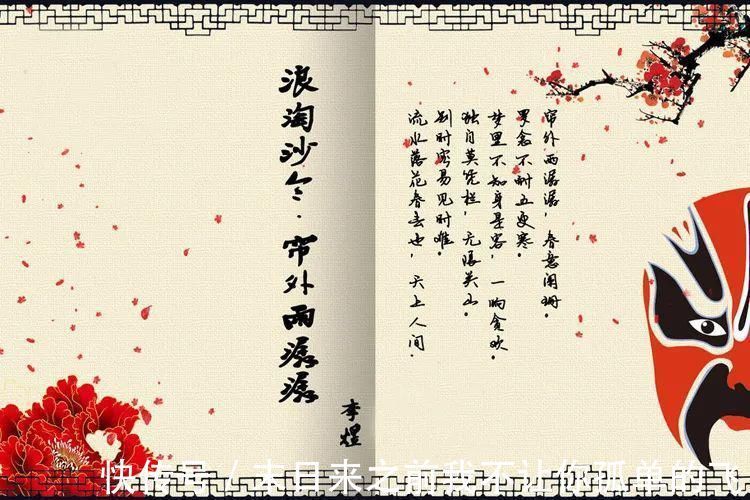 浪淘沙令·帘外雨潺潺
李煜
帘外雨潺潺，春意阑珊。
罗衾不耐五更寒。
梦里不知身是客，一晌贪欢。
独自莫凭栏，无限关山。
别时容易见时难。
流水落花春去也，天上人间。
快传号 / 末日来之前我不让你孤单的飞